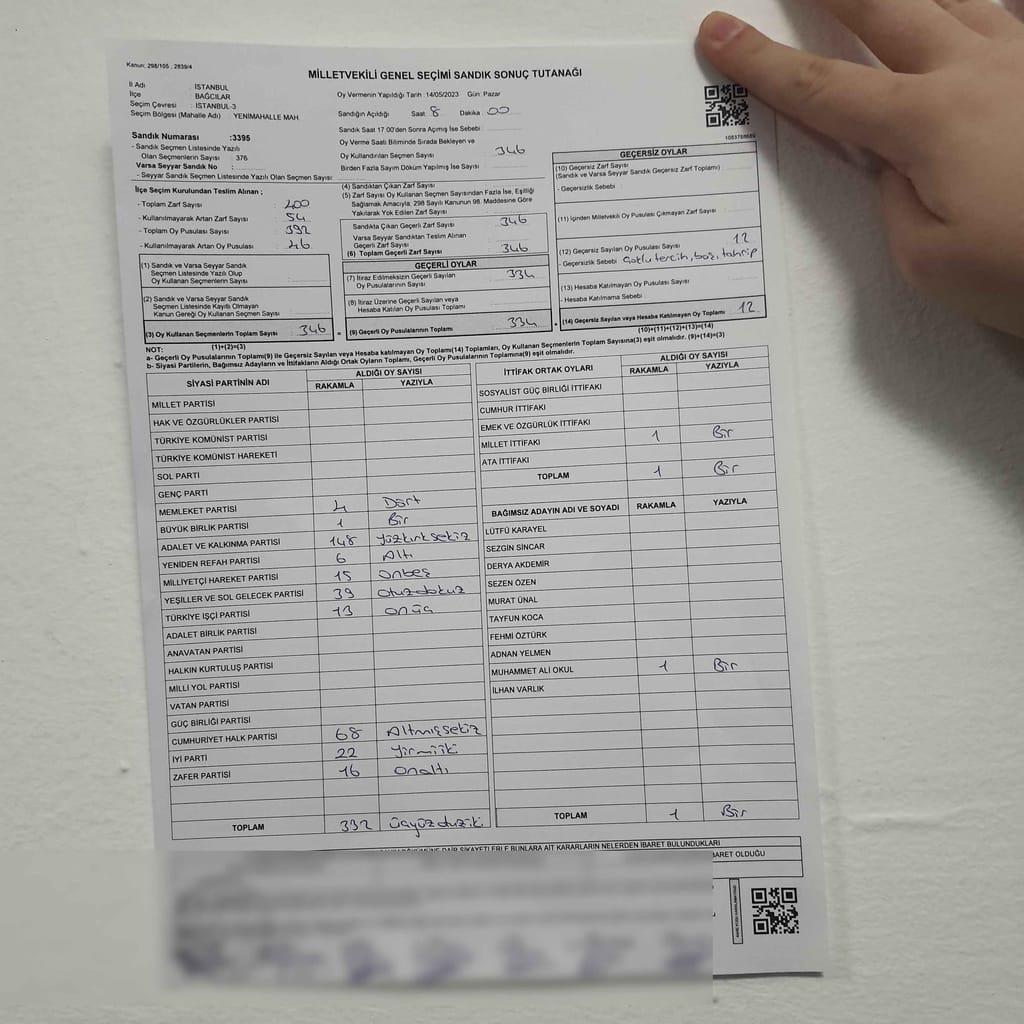 Kanun: 298/105 , 2839/4
MİLLETVEKİLİ GENEL SEÇİMİ SANDIK SONUÇ TUTANAĞI
İl Adı : İSTANBUL
İlçe : BAĞCILAR
Seçim Çevresi : İSTANBUL-3
Seçim Bölgesi (Mahalle Adı) : YENİMAHALLE MAH.
Sandık Numarası :3395
- Sandık Seçmen Listesinde Yazılı
Olan Seçmenlerin Sayısı : 376
Varsa Seyyar Sandık No :
- Seyyar Sandık Seçmen Listesinde Yazılı Olan Seçmen Sayısı:
Oy Vermenin Yapıldığı Tarih :14/05/2023 Gün: Pazar
Sandığın Açıldığı Saat 8 Dakika 00
Sandık Saat 17.00'den Sonra Açılmış İse Sebebi
Oy Verme Saati Bitiminde Sırada Bekleyen ve
Oy Kullandırılan Seçmen Sayısı 346
Birden Fazla Sayım Döküm Yapılmış İse Sayısı
1083788689
İlçe Seçim Kurulundan Teslim Alınan ;
- Toplam Zarf Sayısı : 400
- Kullanılmayarak Artan Zarf Sayısı : 54
- Toplam Oy Pusulası : 392
- Kullanılmayarak Artan Oy Pusulası : 46
(1) Sandık ve Varsa Seyyar Sandık
Seçmen Listesinde Yazılı Olup
Oy Kullanan Seçmenlerin Sayısı :
(2) Sandık ve Varsa Seyyar Sandık
Seçmen Listesinde Kayıtlı Olmayan
Kanun Gereği Oy Kullanan Seçmen Sayısı :
(3) Oy Kullanan Seçmenlerin Toplam Sayısı : 346
(1)+(2)=(3)
(4) Sandıktan Çıkan Zarf Sayısı
(5) Zarf Sayısı Oy Kullanan Seçmen Sayısından Fazla İse, Eşitliği
Sağlamak Amacıyla; 298 Sayılı Kanunun 98. Maddesine Göre
Yakılarak Yok Edilen Zarf Sayısı
Sandıkta Çıkan Geçerli Zarf Sayısı 346
Varsa Seyyar Sandıktan Teslim Alınan
Geçerli Zarf Sayısı
(6) Toplam Geçerli Zarf Sayısı 346
GEÇERLİ OYLAR
(7) İtiraz Edilmeksizin Geçerli Sayılan
Oy Pusulasının Sayısı 334
(8) İtiraz Üzerine Geçerli Sayılan veya
Hesaba Katılan Oy Pusulası Toplamı
= (9) Geçerli Oy Pusulalarının Toplamı 334
GEÇERSİZ OYLAR
(10) Geçersiz Zarf Sayısı
(Sandık ve Varsa Seyyar Sandık Geçersiz Zarf Toplamı)
- Geçersizlik Sebebi :
(11) İçinden Milletvekili Oy Pusulası Çıkmayan Zarf Sayısı
(12) Geçersiz Sayılan Oy Pusulası Sayısı 12
- Geçersizlik Sebebi Çoklu tercih, boş, tahrip
(13) Hesaba Katılmayan Oy Pusulası Sayısı
- Hesaba Katılmama Sebebi
+ (14) Geçersiz Sayılan veya Hesaba Katılmayan Oy Toplamı 12
(10)+(11)+(12)+(13)=(14)
NOT:
a- Geçerli Oy Pusulalarının Toplamı(9) ile Geçersiz Sayılan veya Hesaba katılmayan Oy Toplamı(14) Toplamları, Oy Kullanan Seçmenlerin Toplam Sayısına(3) eşit olmalıdır. (9)+(14)=(3)
b- Siyasi Partilerin, Bağımsız Adayların ve İttifakların Aldığı Ortak Oyların Toplamı, Geçerli Oy Pusulalarının Toplamına(9) eşit olmalıdır.
SİYASİ PARTİNİN ADI ALDIĞI OY SAYISI
RAKAMLA YAZIYLA
MİLLET PARTİSİ
HAK VE ÖZGÜRLÜKLER PARTİSİ
TÜRKİYE KOMÜNİST PARTİSİ
TÜRKİYE KOMÜNİST HAREKETİ
SOL PARTİ
GENÇ PARTİ
MEMLEKET PARTİSİ 4 Dört
BÜYÜK BİRLİK PARTİSİ 1 Bir
ADALET VE KALKINMA PARTİSİ 148 yüzkırksekiz
YENİDEN REFAH PARTİSİ 6 Altı
MİLLİYETÇİ HAREKET PARTİSİ 15 onbeş
YEŞİLLER VE SOL GELECEK PARTİSİ 39 otuzdokuz
TÜRKİYE İŞÇİ PARTİSİ 13 onüç
ADALET BİRLİK PARTİSİ
ANAVATAN PARTİSİ
HALKIN KURTULUŞ PARTİSİ
MİLLİ YOL PARTİSİ
VATAN PARTİSİ
GÜÇ BİRLİĞİ PARTİSİ
CUMHURİYET HALK PARTİSİ 68 Altmışsekiz
İYİ PARTİ 22 yirmiiki
ZAFER PARTİSİ 16 onaltı
TOPLAM 332 üçyüzotuziki
İTTİFAK ORTAK OYLARI ALDIĞI OY SAYISI
RAKAMLA YAZIYLA
SOSYALİST GÜÇ BİRLİĞİ İTTİFAKI
CUMHUR İTTİFAKI
EMEK VE ÖZGÜRLÜK İTTİFAKI
MİLLET İTTİFAKI 1 Bir
ATA İTTİFAKI
TOPLAM 1 Bir
BAĞIMSIZ ADAYIN ADI VE SOYADI RAKAMLA YAZIYLA
LÜTFÜ KARAYEL
SEZGİN SİNCAR
DERYA AKDEMİR
SEZEN ÖZEN
MURAT ÜNAL
TAYFUN KOCA
FEHMİ ÖZTÜRK
ADNAN YELMEN
MUHAMMET ALİ OKUL 1 Bir
İLHAN VARLIK
TOPLAM 1 Bir
DAİR ŞİKAYETLERLE BUNLARA AİT KARARLARIN NELERDEN İBARET BULUNDUKLARI
İBARET OLDUĞU